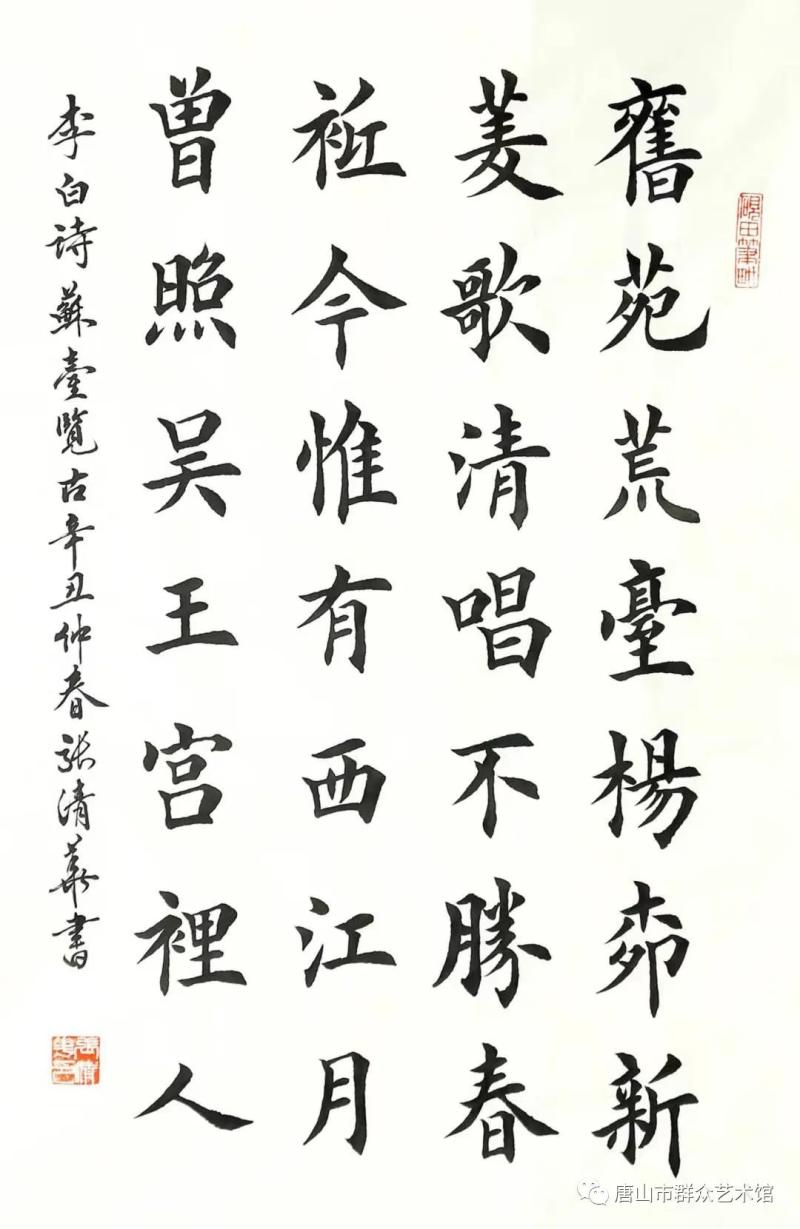 硯田筆畊
舊苑荒臺楊柳新
菱歌清唱不勝春
祗今惟有西江月
曾照吴王宮裡人
李白詩蘇臺覽古辛丑仲春張清華書
唐山市群众艺术馆